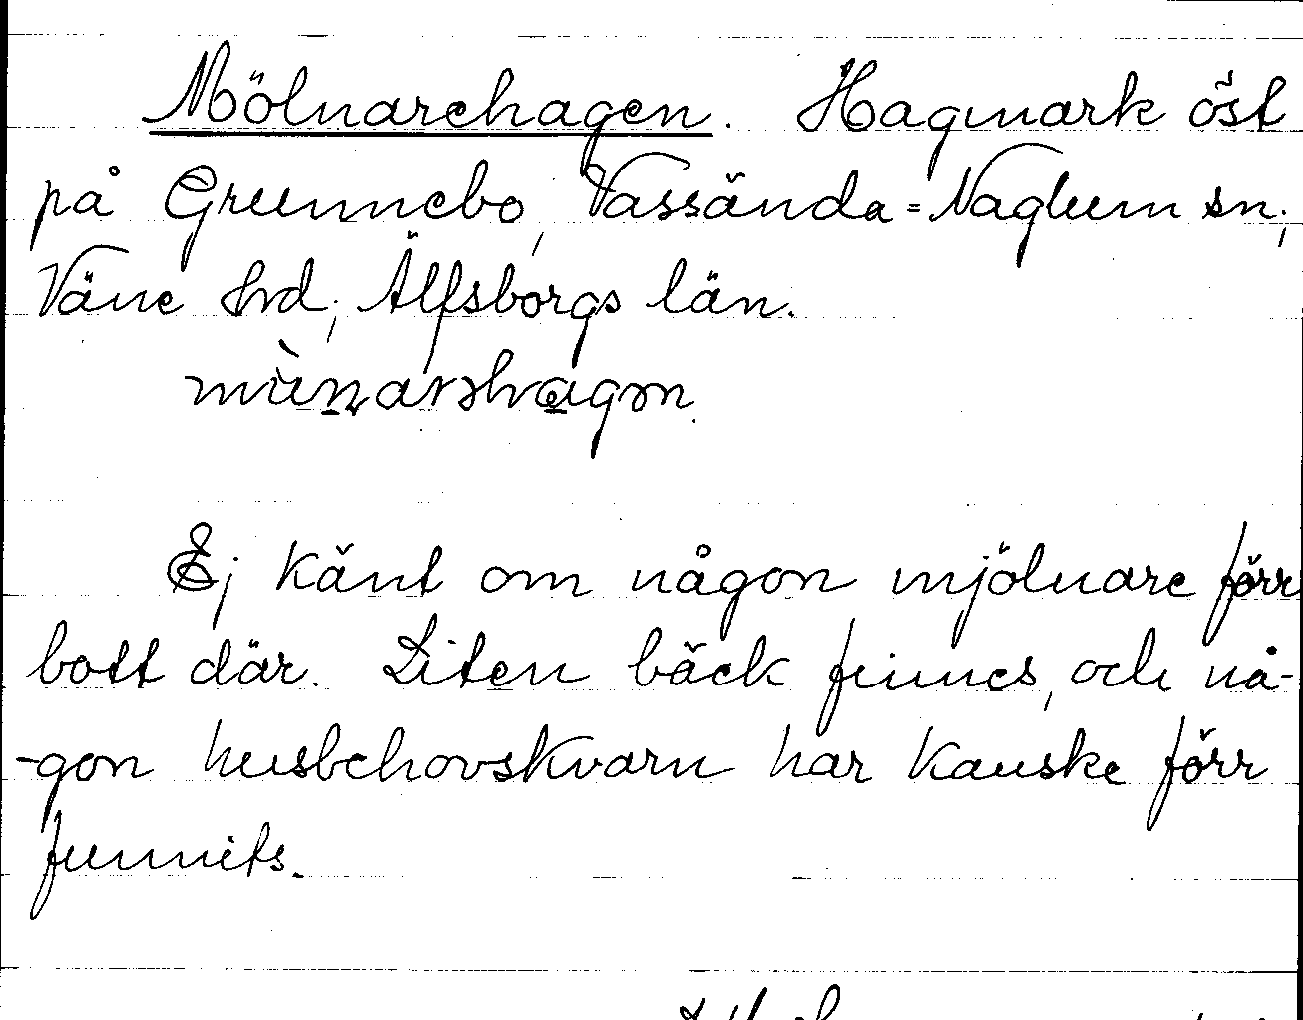 Mölnarehagen. Hagmark öst
på Grunnebo, Vassända=Naglum sn;
Väne hd; Älfsborgs län.
Ej känt om någon mjölnare förr
bott där. Liten bäck finnes, och nå-
-gon husbehovskvarn har kanske förr
funnits.